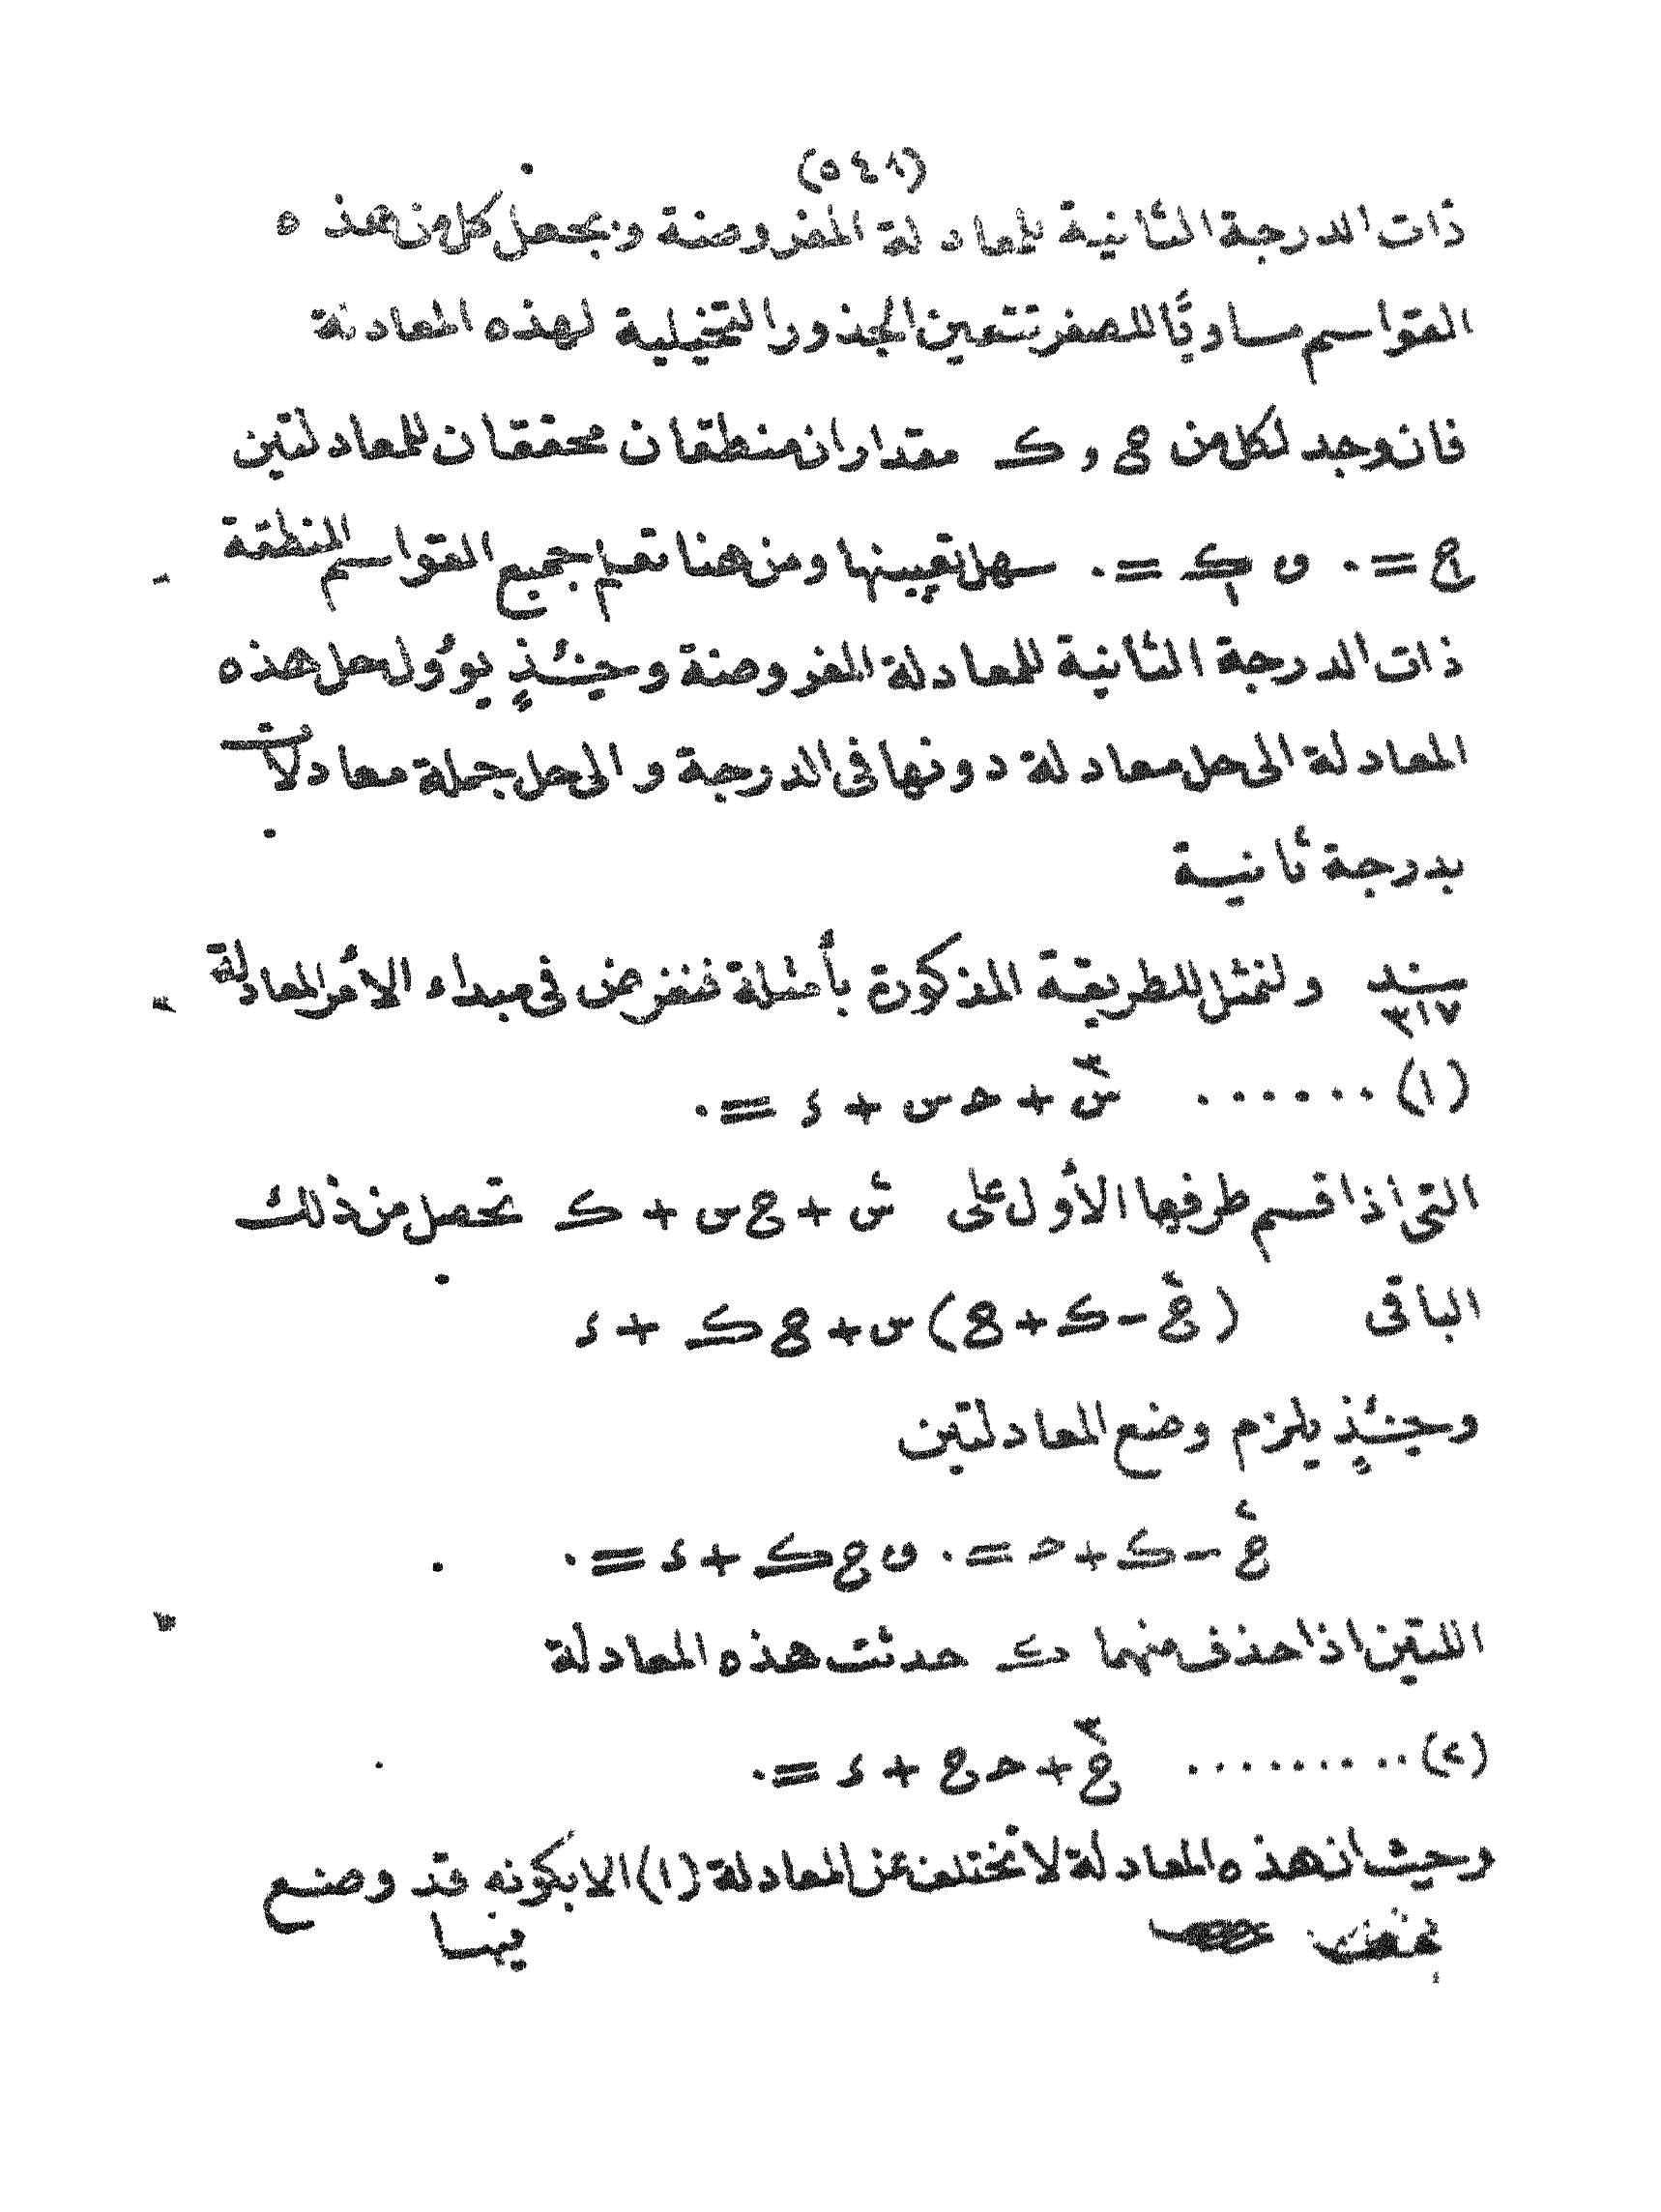 (٥٤٨)
ذات الدرجة الثانية للمعادلة المفروضة وبجعل كل من هذه
القواسم مساويًا للصفر تتعين الجذور التخيلية لهذه المعادلة
فان وجد لكل من ع و ك مقداران منطقان محققان للمعادلتين
ع = ٠ و ك = ٠ سهل تعيينها ومن هنا تعلم جميع القواسم المنطقة
ذات الدرجة الثانية للمعادلة المفروضة وحينئذٍ يوؤل حل هذه
المعادلة الى حل معادلة دونها فى الدرجة والى حل جملة معادلات
بدرجة ثانية
بند ٣١٧ ولنمثل للطريقة المذكورة بأمثلة فنفرض فى مبداء الأمر المعادلة
(١) ...... س٣ + حس + ء = ٠
التى اذا قسم طرفها الأول على س٢ + ع س + ك تحصل من ذلك
الباقى (ع٢ - ك + ح) س + ع ك + ء
وحينئذٍ يلزم وضع المعادلتين
ع٢ - ك + ح = ٠ و ع ك + ء = ٠
اللتين اذا حذف منهما ك حدثت هذه المعادلة
(٢) ......... ع٣ + حع + ء = ٠
وحيث ان هذه المعادلة لا تختلف عن المعادلة (١) الا بكونه قد وضع
فيها